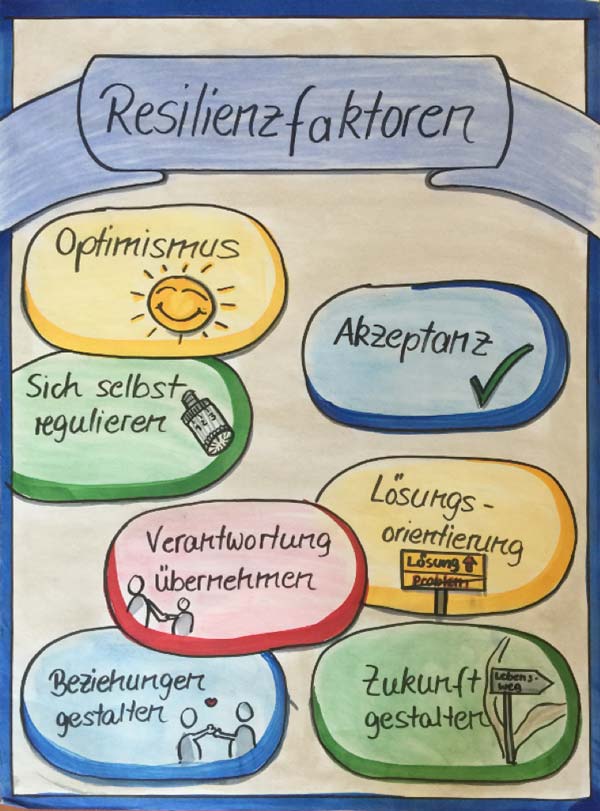 Resilienzfaktoren
Optimismus
Akzeptanz
Sich selbst
regulieren
1 2 3
Lösungs-
orientierung
Lösung
Problem
Verantwortung
übernehmen
Beziehungen
gestalten
Zukunft
gestalten
Lebens-
weg